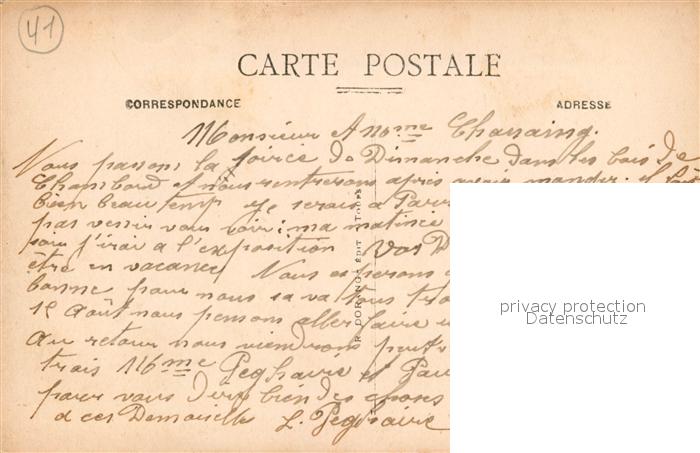 41
CARTE POSTALE
CORRESPONDANCE
ADRESSE
Monsieur & Mme Chassaing.
Nous passons la soirée de Dimanche dans les bois de
Chambord et nous rentrerons après avoir manger. il fait
bien beau temp je serais a Paris
pas venir vous voir; ma matinée
soir j'irai a l'exposition Vos D
être en vacance Nous esperons
bonne pour nous sa va tous
15 Août nous pensons aller faire
Au retour nous viendrons peut
trais Mme Peghaire et
pour vous dire bien des choses
a ces Demoiselle L. Peghaire
R. DORANGE ÉDIT. TOURS
privacy protection
Datenschutz